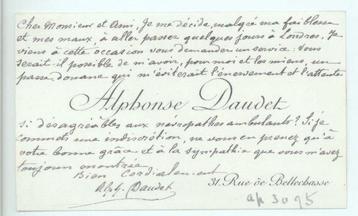 Cher Monsieur et Ami, Je me décide, malgré ma faiblesse
et mes maux, à aller passer quelques jours à Londres. Je
viens à cette occasion vous demander un service. Vous
serait il possible de m'avoir, pour moi et les miens, un
passe douane qui m'éviterait l'énervement et l'attente
Alphonse Daudet
si désagréables aux névropathes ambulants? Si je
commets une indiscrétion, ne vous en prenez qu'à
votre bonne grâce et à la sympathie que vous m'avez
toujours montrée
Bien Cordialement
Alph. Daudet
31, Rue de Bellechasse
ap 30 95